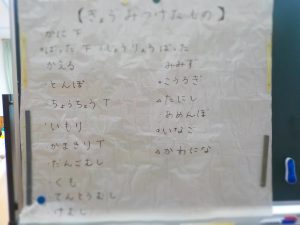 【きょうみつけたもの】
かに 下
ばった 下 しょうりょうばった
かえる
とんぼ
ちょうちょう 下
いもり
かまきり 下
だんごむし
くも
てんとうむし
けむし
みみず
こうろぎ
たにし
あめんぼ
いなご
かわにな